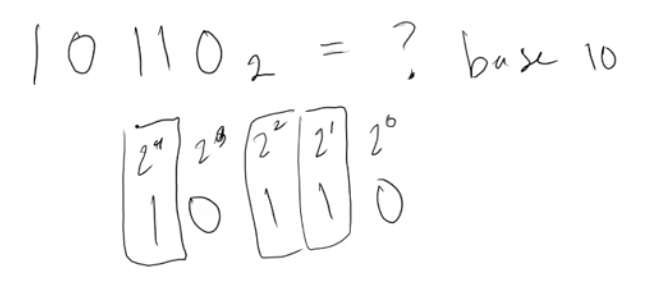 10110₂ = ? base 10
2⁴ 2³ 2² 2¹ 2⁰
1 0 1 1 0